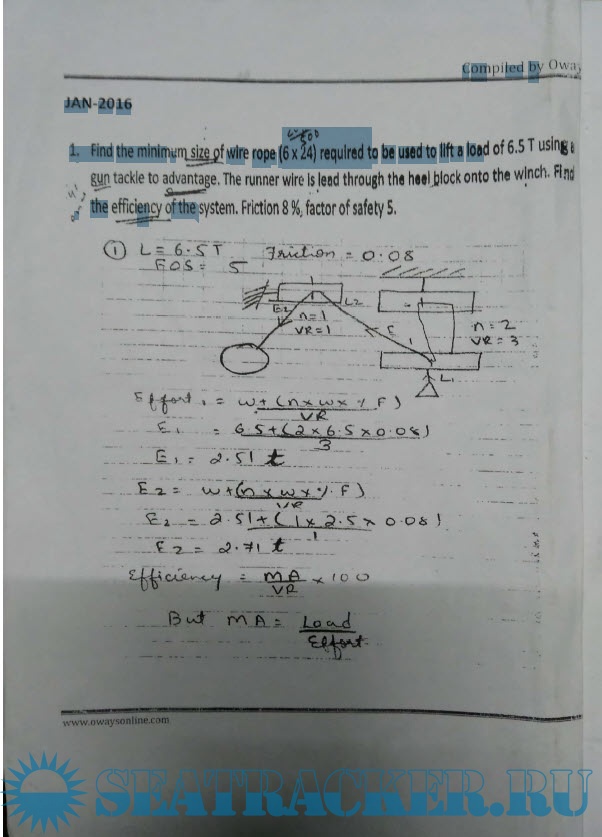 Compiled by Oway
JAN-2016
1. Find the minimum size of wire rope (6 x 24) required to be used to lift a load of 6.5 T using a
gun tackle to advantage. The runner wire is lead through the heel block onto the winch. Find
the efficiency of the system. Friction 8 %, factor of safety 5.
① L = 6.5 T Friction = 0.08
FOS = 5
E2 L2
n=1
VR=1
E1
n=2
VR=3
L1
Effort1 = w+(n×w×% F)
VR
E1 = 6.5+(2×6.5×0.08)
3
E1 = 2.51 t
E2 = w+(n×w×%F)
VR
E2 = 2.51+(1×2.5×0.08)
1
E2 = 2.71 t
Efficiency = MA ×100
VR
But MA = Load
Effort
www.owaysonline.com
SEATRACKER.RU